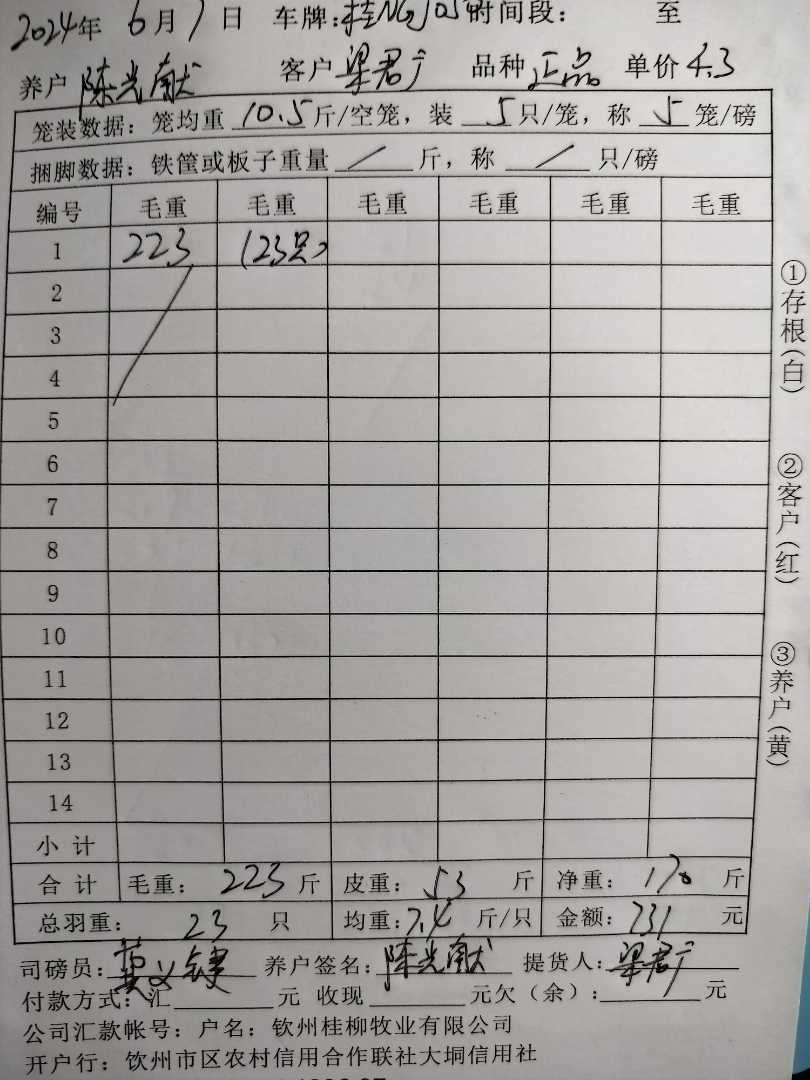 2024年 6月 7日 车牌:桂 时间段: 至
养户 陈光献 客户 梁君广 品种 正品 单价 4.3
笼装数据: 笼均重 10.5 斤/空笼, 装 5 只/笼, 称 5 笼/磅
捆脚数据: 铁筐或板子重量 / 斤, 称 / 只/磅
编号 毛重 毛重 毛重 毛重 毛重 毛重
1 223 (23只)
2
3
4
5
6
7
8
9
10
11
12
13
14
小计
合计 毛重: 223 斤 皮重: 53 斤 净重: 170 斤
总羽重: 23 只 均重: 7.4 斤/只 金额: 731 元
司磅员: 养户签名: 陈光献 提货人: 梁君广
付款方式: 汇 元 收现 元欠(余): 元
公司汇款帐号: 户名: 钦州桂柳牧业有限公司
开户行: 钦州市区农村信用合作联社大垌信用社
①存根(白)
②客户(红)
③养户(黄)